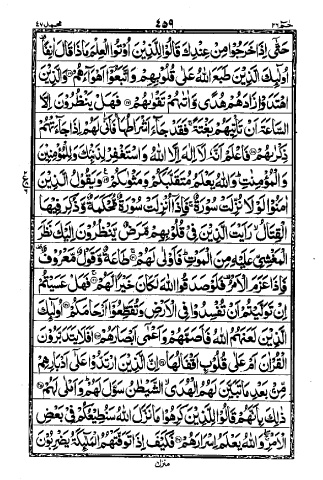 حٰم ٢٦ ٤٥٩ محمد ٤٧
حَتّٰٓى اِذَا خَرَجُوْا مِنْ عِنْدِكَ قَالُوْا لِلَّذِيْنَ اُوْتُوا الْعِلْمَ مَاذَا قَالَ اٰنِفًا
اُولٰٓئِكَ الَّذِيْنَ طَبَعَ اللّٰهُ عَلٰى قُلُوْبِهِمْ وَاتَّبَعُوْٓا اَهْوَآءَهُمْ وَالَّذِيْنَ
اهْتَدَوْا زَادَهُمْ هُدًى وَّاٰتٰىهُمْ تَقْوٰىهُمْ فَهَلْ يَنْظُرُوْنَ اِلَّا
السَّاعَةَ اَنْ تَاْتِيَهُمْ بَغْتَةً فَقَدْ جَآءَ اَشْرَاطُهَا فَاَنّٰى لَهُمْ اِذَا جَآءَتْهُمْ
ذِكْرٰىهُمْ فَاعْلَمْ اَنَّهٗ لَآ اِلٰهَ اِلَّا اللّٰهُ وَاسْتَغْفِرْ لِذَنْۢبِكَ وَلِلْمُؤْمِنِيْنَ
وَالْمُؤْمِنٰتِ وَاللّٰهُ يَعْلَمُ مُتَقَلَّبَكُمْ وَمَثْوٰىكُمْ وَيَقُوْلُ الَّذِيْنَ
اٰمَنُوْا لَوْلَا نُزِّلَتْ سُوْرَةٌ فَاِذَآ اُنْزِلَتْ سُوْرَةٌ مُّحْكَمَةٌ وَّذُكِرَ فِيْهَا
الْقِتَالُ رَاَيْتَ الَّذِيْنَ فِيْ قُلُوْبِهِمْ مَّرَضٌ يَّنْظُرُوْنَ اِلَيْكَ نَظَرَ
الْمَغْشِيِّ عَلَيْهِ مِنَ الْمَوْتِ فَاَوْلٰى لَهُمْ طَاعَةٌ وَّقَوْلٌ مَّعْرُوْفٌ
فَاِذَا عَزَمَ الْاَمْرُ فَلَوْ صَدَقُوا اللّٰهَ لَكَانَ خَيْرًا لَّهُمْ فَهَلْ عَسَيْتُمْ
اِنْ تَوَلَّيْتُمْ اَنْ تُفْسِدُوْا فِي الْاَرْضِ وَتُقَطِّعُوْٓا اَرْحَامَكُمْ اُولٰٓئِكَ
الَّذِيْنَ لَعَنَهُمُ اللّٰهُ فَاَصَمَّهُمْ وَاَعْمٰٓى اَبْصَارَهُمْ اَفَلَا يَتَدَبَّرُوْنَ
الْقُرْاٰنَ اَمْ عَلٰى قُلُوْبٍ اَقْفَالُهَا اِنَّ الَّذِيْنَ ارْتَدُّوْا عَلٰٓى اَدْبَارِهِمْ
مِّنْۢ بَعْدِ مَا تَبَيَّنَ لَهُمُ الْهُدَى الشَّيْطٰنُ سَوَّلَ لَهُمْ وَاَمْلٰى لَهُمْ
ذٰلِكَ بِاَنَّهُمْ قَالُوْا لِلَّذِيْنَ كَرِهُوْا مَا نَزَّلَ اللّٰهُ سَنُطِيْعُكُمْ فِيْ بَعْضِ
الْاَمْرِ وَاللّٰهُ يَعْلَمُ اِسْرَارَهُمْ فَكَيْفَ اِذَا تَوَفَّتْهُمُ الْمَلٰٓئِكَةُ يَضْرِبُوْنَ
منزل